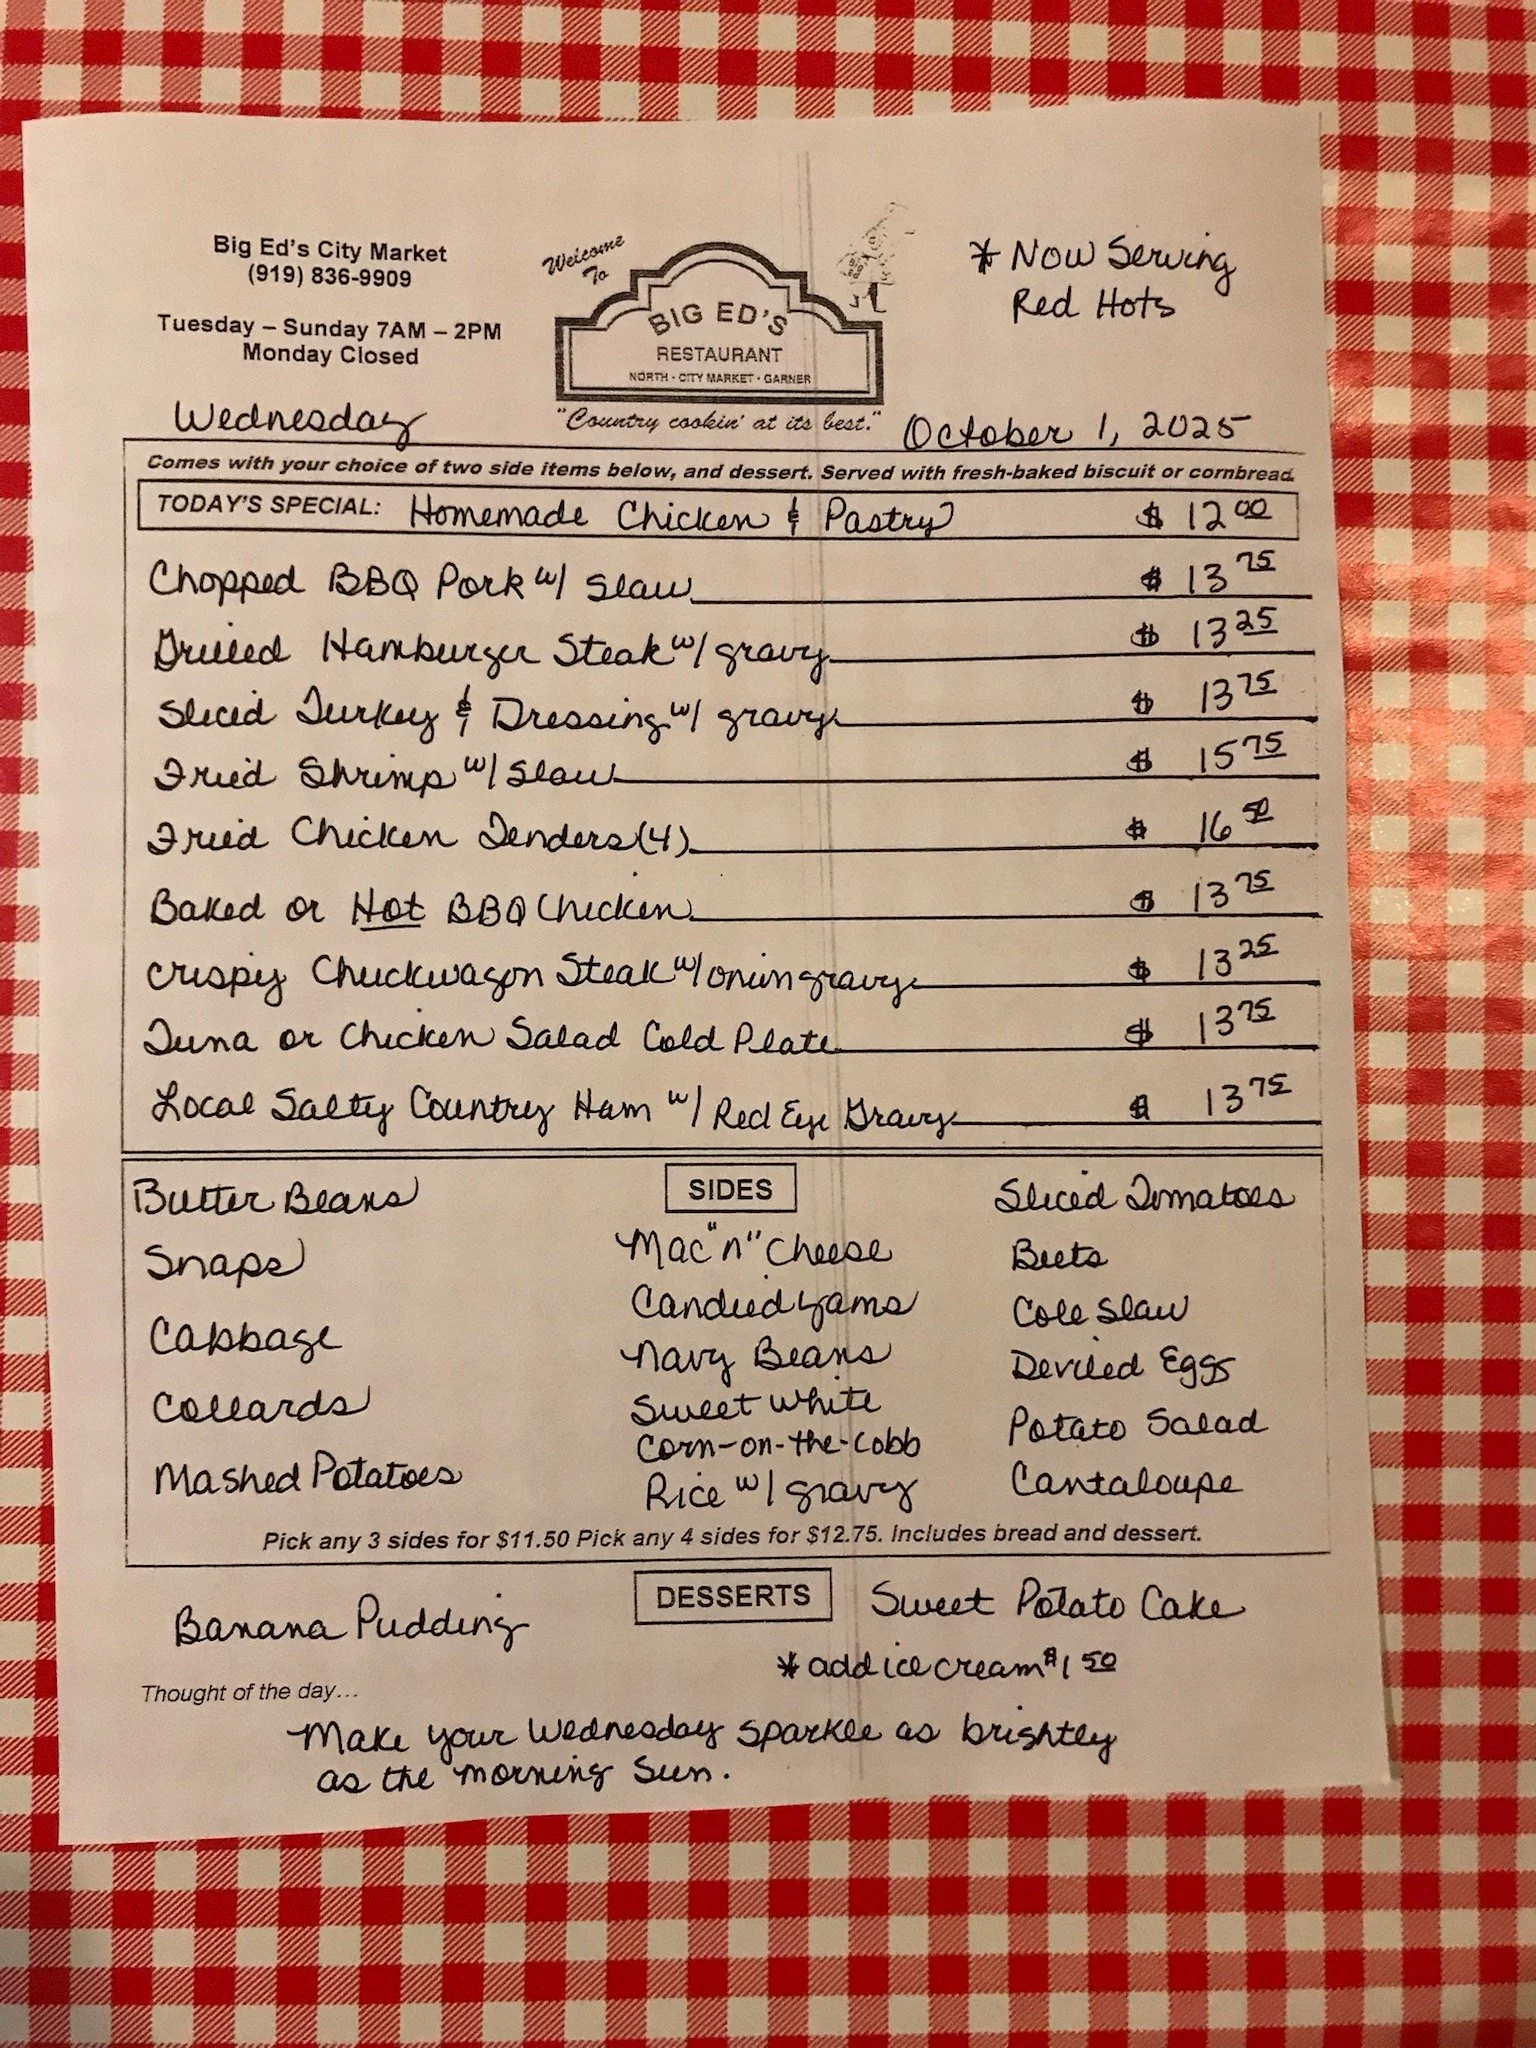 Big Ed's City Market
(919) 836-9909
Tuesday – Sunday 7AM – 2PM
Monday Closed
Welcome
To
BIG ED'S
RESTAURANT
NORTH · CITY MARKET · GARNER
"Country cookin' at its best."
* Now Serving
Red Hots
Wednesday
October 1, 2025
Comes with your choice of two side items below, and dessert. Served with fresh-baked biscuit or cornbread.
TODAY'S SPECIAL: Homemade Chicken & Pastry $ 12.00
Chopped BBQ Pork w/ Slaw $ 13 75
Grilled Hamburger Steak w/ gravy $ 13 25
Sliced Turkey & Dressing w/ gravy $ 13 75
Fried Shrimp w/ Slaw $ 15 75
Fried Chicken Tenders (4) $ 16 50
Baked or Hot BBQ Chicken $ 13 75
Crispy Chuckwagon Steak w/ onion gravy $ 13 25
Tuna or Chicken Salad Cold Plate $ 13 75
Local Salty Country Ham w/ Red Eye Gravy $ 13 75
SIDES
Butter Beans
Snaps
Cabbage
Collards
Mashed Potatoes
Mac "n" Cheese
Candied Yams
Navy Beans
Sweet White
Corn-on-the-Cobb
Rice w/ gravy
Sliced Tomatoes
Beets
Cole Slaw
Deviled Eggs
Potato Salad
Cantaloupe
Pick any 3 sides for $11.50 Pick any 4 sides for $12.75. Includes bread and dessert.
DESSERTS
Banana Pudding
Sweet Potato Cake
* add ice cream $1 50
Thought of the day…
Make your Wednesday sparkle as brightly
as the morning Sun.